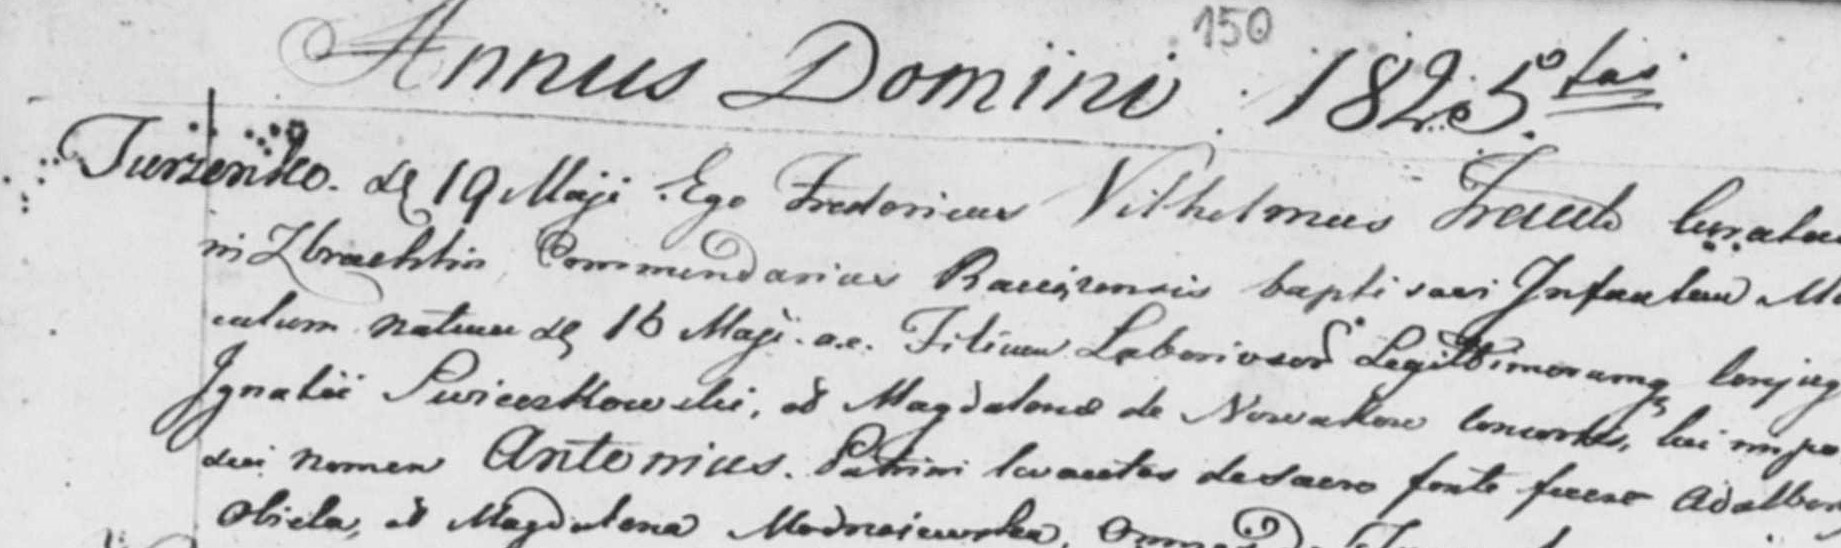 150
Annus Domini 1825tus
Turzenko. de 19 Maji Ego Fredericus Vilhelmus Curatus
in Zbrachlin, Commendarius Raciążensis baptisavi Infantem Ma
culum natum de 16 Maji. a.c. Filium Laboriosor Legittimorumq Conjug
Ignatii Swieczkowski, et Magdalena de Nowakow consortis, cui impo
sui nomen Antonius. Patrini levantes de sacro fonte fuere Adalber
Obiela, et Magdalena